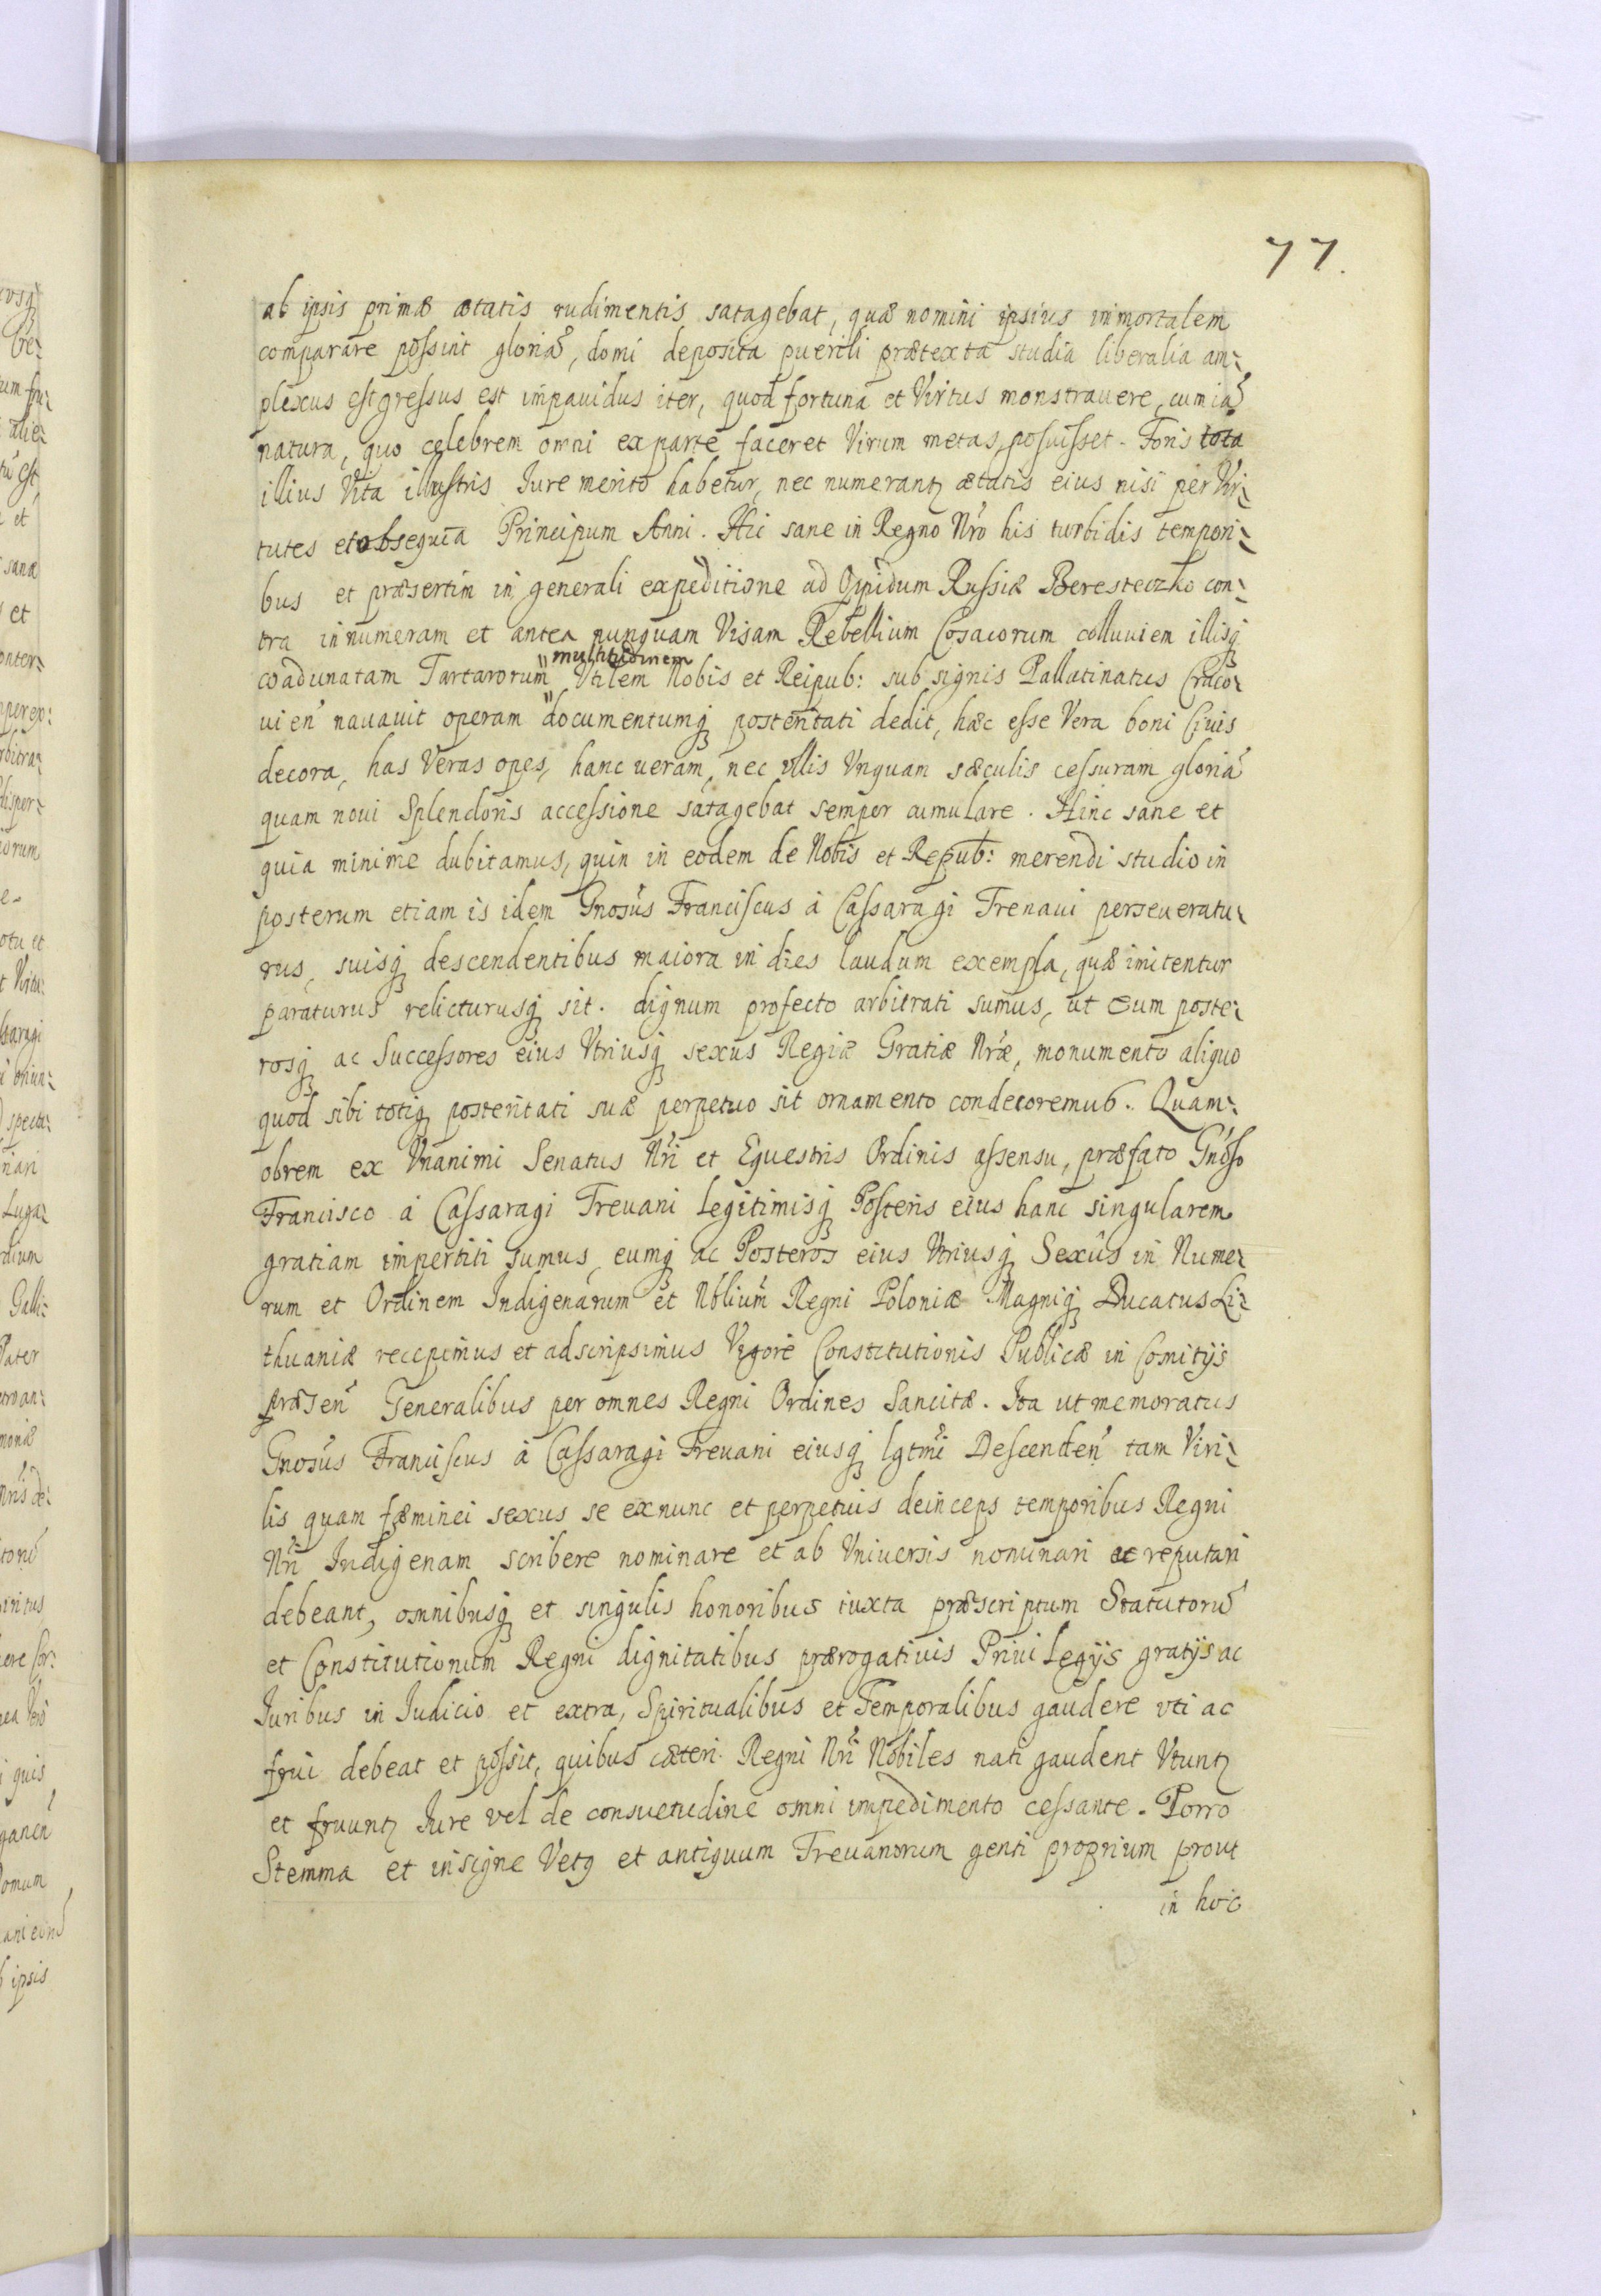 77.
ab ipsis primæ ætatis rudimentis satagebat, quæ nomini ipsius immortalem
comparare possint gloriã, domi deposita puerili prætexta studia liberalia am-
plexus est gressus est impauidus iter, quod fortuna et Virtus monstrauere, cum iã
natura, quo celebrem omni ex parte faceret Virum metas posuisset. Foris tota
illius Vita illustris Iure merito habetur, nec numerantꝫ ætatis eius nisi per Vir-
tutes et obsequia Principum Anni. Hic sane in Regno Nrõ his turbidis tempori-
bus et præsertim in generali expeditione ad Oppidum Russiæ Beresteczko con-
tra innumeram et antea nunquam Visam Rebellium Cosacorum colluuien illisqꝫ
multitudinem
coadunatam Tartarorum " Vtilem Nobis et Reipub: sub signis Pallatinatus Craco-
uien̄ nauauit operam "documentumqꝫ posteritati dedit, hæc esse Vera boni Ciuis
decora, has Veras opes, hanc ueram, nec vllis Vnquam sæculis cessuram gloriã
quam noui Splendoris accessione satagebat semper cumulare. Hinc sane et
quia minime dubitamus, quin in eodem de Nobis et Repub: merendi studio in
posterum etiam is idem Gnosũs Franciscus à Cassaragi Treuani perseueratu-
rus, suisqꝫ descendentibus maiora in dies laudum exempla, quæ imitentur
paraturus relicturusqꝫ sit. dignum profecto arbitrati sumus, ut eum poste-
rosqꝫ ac Successores eius Vtriusqꝫ sexus Regiæ Gratiæ Nræ̃, monumento aliquo
quod sibi totiqꝫ posteritati suæ perpetuo sit ornamento condecoremus. Quam-
obrem ex Vnanimi Senatus Nrĩ et Equestris Ordinis assensu, præfato Gnõso
Francisco à Cassaragi Treuani legitimisqꝫ Posteris eius hanc singularem
gratiam impertiti sumus, eumqꝫ ac Posteros eius Vtriusqꝫ Sexus in Nume-
rum et Ordinem Indigenarum et Nbliũm Regni Poloniæ Magniqꝫ Ducatus Li-
thuaniæ recepimus et adscripsimus Vigore Constitutionis Publicæ in Comitÿs
præsen̄ Generalibus per omnes Regni Ordines Sancitæ. Ita ut memoratus
Gnosũs Franciscus à Cassaragi Treuani eiusqꝫ lgtmĩ Descenden̄ tam Viri-
lis quam fæminei sexus se ex nunc et perpetuis deinceps temporibus Regni
Nrĩ Indigenam scribere nominare et ab Vniuersis nominari ac reputari
debeant, omnibusqꝫ et singulis honoribus iuxta præscriptum Statutorũ
et Constitutionum Regni dignitatibus prærogatiuis Priuilegÿs gratÿs ac
Iuribus in Iudicio et extra, Spiritualibus et Temporalibus gaudere vti ac
frui debeat et possit, quibus cæteri Regni Nrĩ Nobiles nati gaudent Vtuntꝫ
et fruuntꝫ Iure vel de consuetudine omni impedimento cessante. Porro
Stemma et insigne Vetꝫ et antiquum Treuanorum genti proprium prout
in hoc